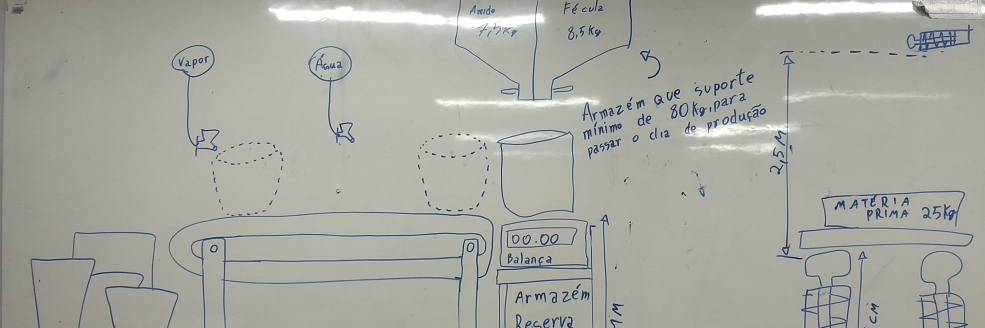 Amido
7,5Kg
Fécula
8,5Kg
Vapor
Água
Armazém que suporte
mínimo de 80Kg, para
passar o dia de produção
2,5M
MATÉRIA
PRIMA 25Kg
00.00
Balança
Armazém
Reserva